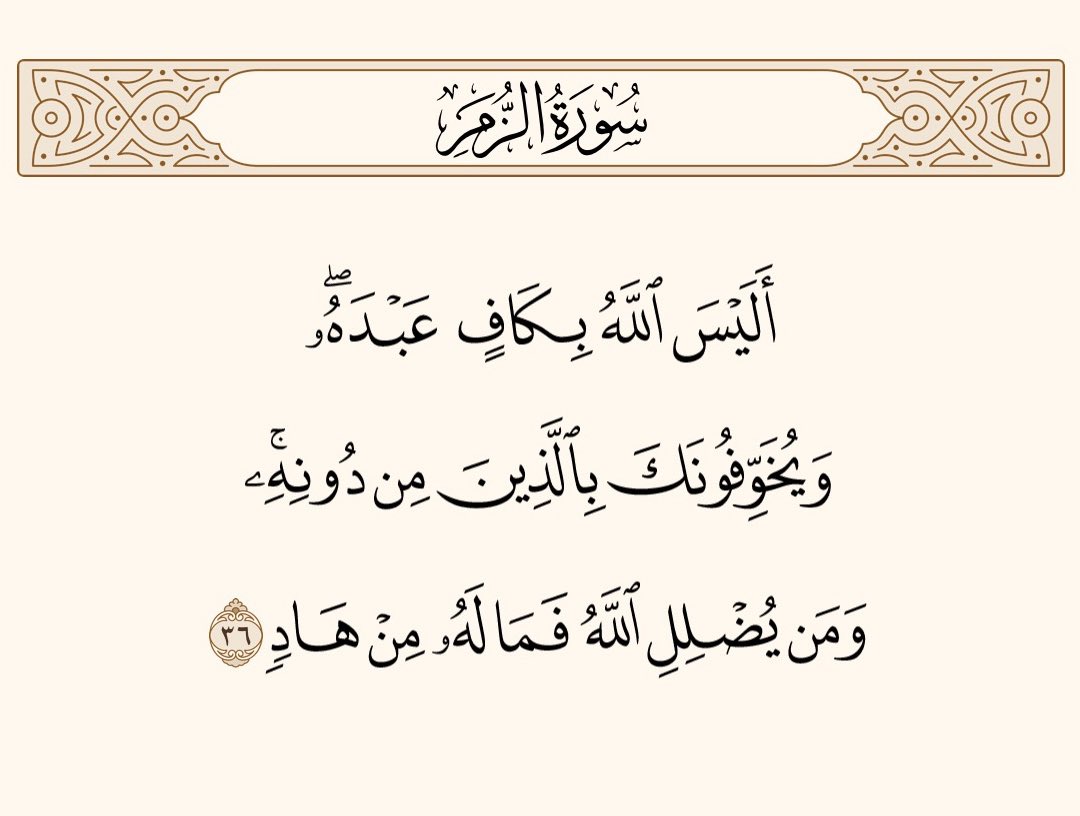 سُورَةُ الزُّمَرِ
أَلَيۡسَ ٱللَّهُ بِكَافٍ عَبۡدَهُۥۖ
وَيُخَوِّفُونَكَ بِٱلَّذِينَ مِن دُونِهِۦۚ
وَمَن يُضۡلِلِ ٱللَّهُ فَمَا لَهُۥ مِنۡ هَادٖ ٣٦